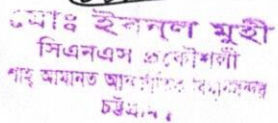 মোঃ ইবনুল মুহী
সিএনএস প্রকৌশলী
শাহ্ আমানত আন্তর্জাতিক বিমানবন্দর
চট্টগ্রাম।